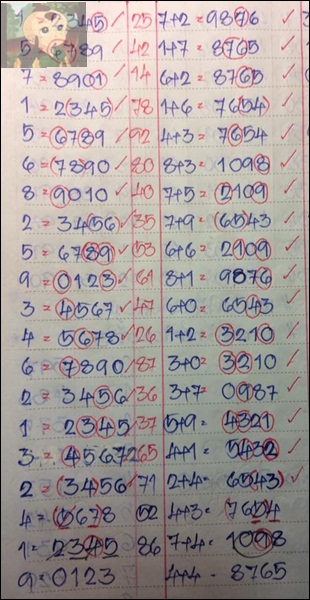 1 = 2345 ✓ 25 7+2 = 9876 ✓
5 = 6789 ✓ 42 1+7 = 8765 ✓
7 = 8901 ✓ 14 6+2 = 8765 ✓
1 = 2345 ✓ 78 1+6 = 7654 ✓
5 = 6789 ✓ 92 4+3 = 7654 ✓
6 = 7890 ✓ 80 8+3 = 1098 ✓
8 = 9010 ✓ 40 7+5 = 2109 ✓
2 = 3456 ✓ 35 7+9 = 6543 ✓
5 = 6789 ✓ 53 6+6 = 2109 ✓
9 = 0123 ✓ 61 8+1 = 9876 ✓
3 = 4567 ✓ 47 6+0 = 6543 ✓
4 = 5678 ✓ 26 1+2 = 3210 ✓
6 = 7890 ✓ 87 3+0 = 3210 ✓
2 = 3456 ✓ 36 3+7 = 0987 ✓
1 = 2345 ✓ 37 5+9 = 4321 ✓
3 = 4567 265 4+1 = 5432 ✓
2 = (3456 ✓ 71 2+4 = 6543) ✓
4 = 5678 52 4+3 = 7654
1 = 2345 86 7+4 = 1098
9 = 0123 4+4 - 8765